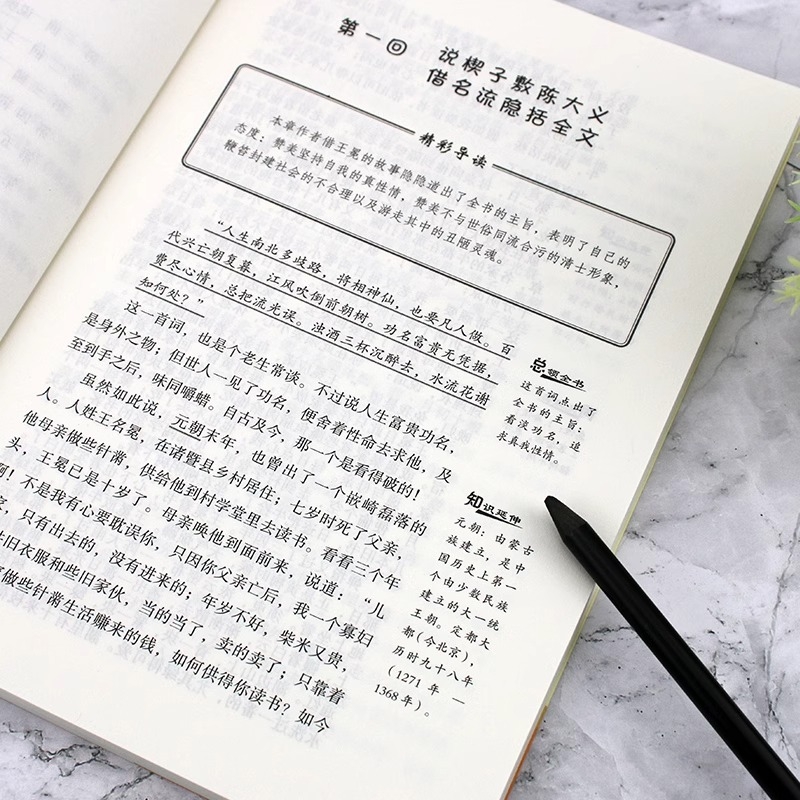 第一回 说楔子敷陈大义
借名流隐括全文
精彩导读
本章作者借王冕的故事隐隐道出了全书的主旨，表明了自己的
态度：赞美坚持自我的真性情，赞美不与世俗同流合污的清士形象，
鞭笞封建社会的不合理以及游走其中的丑陋灵魂。
“人生南北多歧路，将相神仙，也要凡人做。百
代兴亡朝复暮，江风吹倒前朝树。功名富贵无凭据，
费尽心情，总把流光误。浊酒三杯沉醉去，水流花谢
知何处？”
这一首词，也是个老生常谈。不过说人生富贵功名，
是身外之物；但世人一见了功名，便舍着性命去求他，及
至到手之后，味同嚼蜡。自古及今，那一个是看得破的！
虽然如此说，元朝末年，也曾出了一个嵌崎磊落的
人。人姓王名冕，在诸暨县乡村居住；七岁时死了父亲，
他母亲做些针黹，供给他到村学堂里去读书。看看三个年
头，王冕已是十岁了。母亲唤他到面前来，说道：“儿
啊！不是我有心要耽误你，只因你父亲亡后，我一个寡妇
家，只有出去的，没有进来的；年岁不好，柴米又贵，
些旧衣服和些旧家伙，当的当了，卖的卖了；只靠着
做些针黹生活赚来的钱，如何供得你读书？如今
总领全书
这首词点出了
全书的主旨：
看淡功名，追
求真我性情。
知识延伸
元朝：由蒙古
族建立，是中
国历史上第一
个由少数民族
建立的大一统
王朝。定都大
都（今北京），
历时九十八年
（1271 年 —
1368 年）。